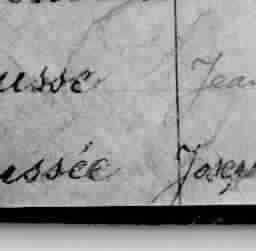 usse Jean
ussée Joseph